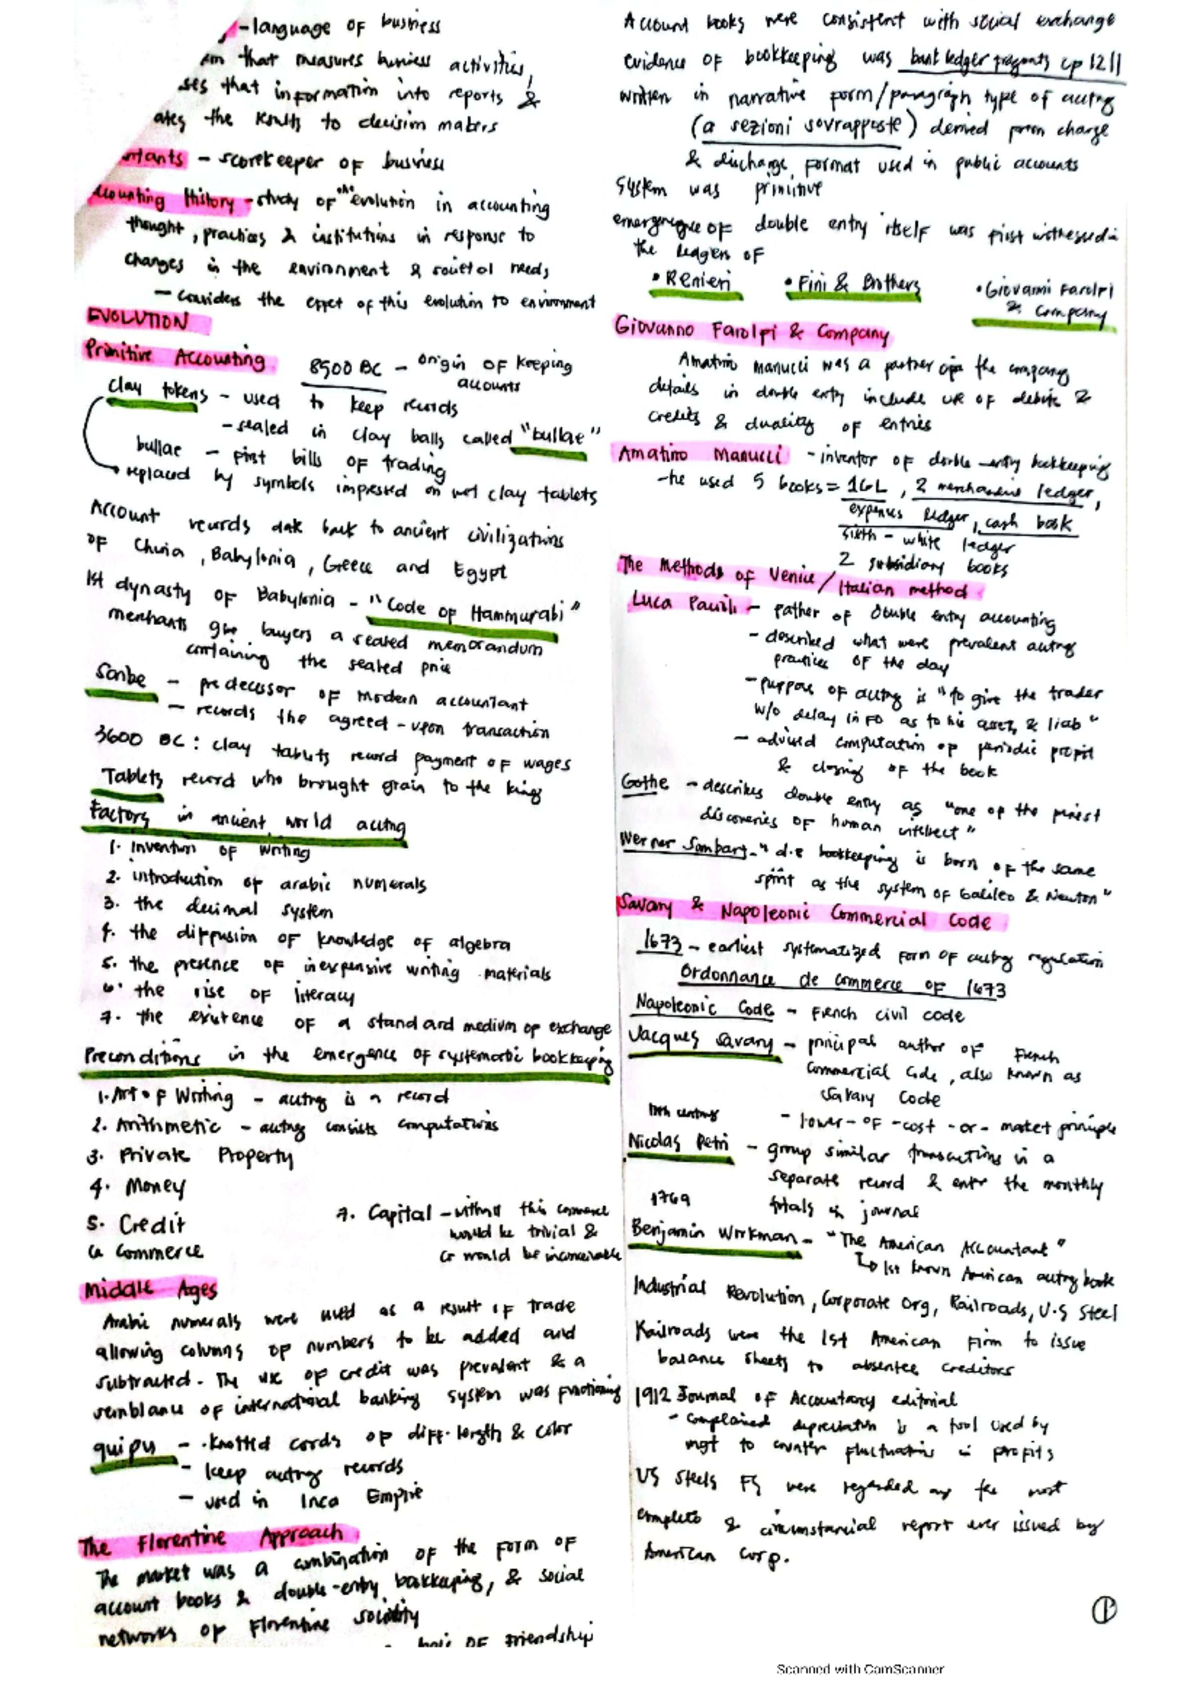 - language of business
that measures business activities,
that information into reports &
the results to decision makers
- scorekeeper of business
History - study of the evolution in accounting
thought, practices & institutions in response to
changes in the environment & societal needs
- considers the effect of this evolution to environment
EVOLUTION
Primitive Accounting
8500 BC - origin of keeping
accounts
clay tokens - used to keep records
- sealed in clay balls called "bullae"
bullae - first bills of trading
replaced by symbols impressed on wet clay tablets
Account records date back to ancient civilizations
of China, Babylonia, Greece and Egypt
1st dynasty of Babylonia - "Code of Hammurabi"
merchants give buyers a sealed memorandum
containing the sealed price
Scribe - predecessor of modern accountant
- records the agreed-upon transaction
3600 BC: clay tablets record payment of wages
Tablets record who brought grain to the king
Factors in ancient world acctng
1. Invention of writing
2. introduction of arabic numerals
3. the decimal system
4. the diffusion of knowledge of algebra
5. the presence of inexpensive writing materials
6. the rise of literacy
7. the existence of a standard medium of exchange
Preconditions in the emergence of systematic bookkeeping
1. Art of Writing - acctng is a record
2. Arithmetic - acctng consists computations
3. Private Property
4. Money
5. Credit
6. Commerce
7. Capital - without this commerce
would be trivial &
cr would be inconceivable
Middle Ages
Arabic numerals were used as a result of trade
allowing columns of numbers to be added and
subtracted. The use of credit was prevalent & a
semblance of international banking system was functioning
quipu - knotted cords of diff. length & color
- keep acctng records
- used in Inca Empire
The Florentine Approach
The market was a combination of the form of
account books & double-entry bookkeeping, & social
networks of Florentine
OF friendship
Account books were consistent with social exchange
evidence of bookkeeping was bank ledger fragments of 1211
written in narrative form/paragraph type of acctng
(a sezioni sovrapposte) derived from charge
& discharge format used in public accounts
System was primitive
emergence of double entry itself was first witnessed in
the ledgers of
• Renieri
• Fini & Brothers
• Giovanni Farolfi
& Company
Giovanno Farolfi & Company
Amatino Manucci was a partner of the company
details in double entry include use of debits &
credits & duality of entries
Amatino Manucci - inventor of double-entry bookkeeping
- he used 5 books = 1 GL, 2 merchandise ledger,
expenses ledger, cash book
sixth - white ledger
2 subsidiary books
The Methods of Venice/Italian method
Luca - father of double entry accounting
- described what were prevalent acctng
practices of the day
- purpose of acctng is "to give the trader
w/o delay info as to his assets & liab"
- advised computation of periodic profit
& closing of the book
Gothe - describes double entry as "one of the finest
discoveries of human intellect"
Werner Sombart - "d.e bookkeeping is born of the same
spirit as the system of Galileo & Newton"
Savary & Napoleonic Commercial Code
1673 - earliest systematized form of acctng regulation
Ordonnance de commerce of 1673
Napoleonic Code - French civil code
Jacques Savary - principal author of French
Commercial Code, also known as
Savary Code
- lower-of-cost-or-market principle
century
Nicolas Petri - group similar transactions in a
separate record & enter the monthly
totals in journal
1769
Benjamin Workman - "The American Accountant"
1st known American acctng book
Industrial Revolution, Corporate Org, Railroads, U.S Steel
Railroads were the 1st American Firm to issue
balance sheets to absentee creditors
1912 Journal of Accountancy editorial
- complained depreciation is a tool used by
mgt to counter fluctuations in profits
US Steels FS were regarded as the most
complete & circumstancial report ever issued by
American Corp.
1
Scanned with CamScanner